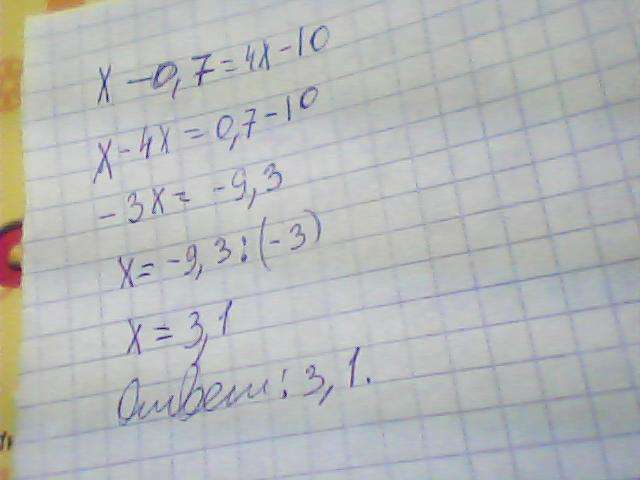 x-0,7=4x-10
x-4x=0,7-10
-3x=-9,3
x=-9,3:(-3)
x=3,1
Ответ: 3,1.